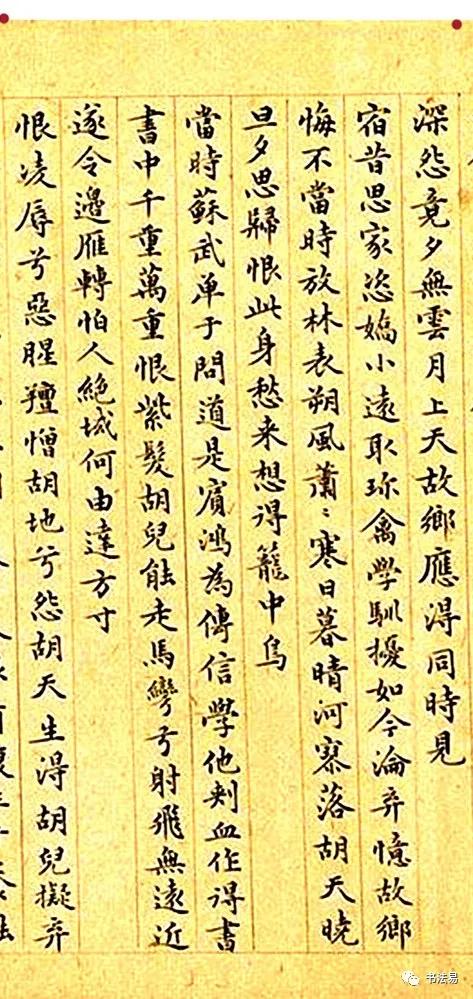 深怨竟夕無雲月上天故鄉應得同時見
宿昔思家恣嬌小遠取珎禽學馴擾如今淪弃憶故鄉
悔不當時放林表朔風蕭〻寒日暮晴河寥落胡天曉
旦夕思歸恨此身愁来想得籠中鳥
當時蘇武单于問道是賓鴻為傳信學他刺血作得書
書中千重萬重恨紫髮胡兒能走馬彎弓射飛無遠近
遂令邊雁轉怕人絶域何由達方寸
恨凌辱兮惡腥羶憎胡地兮怨胡天生得胡兒擬弃
书法易